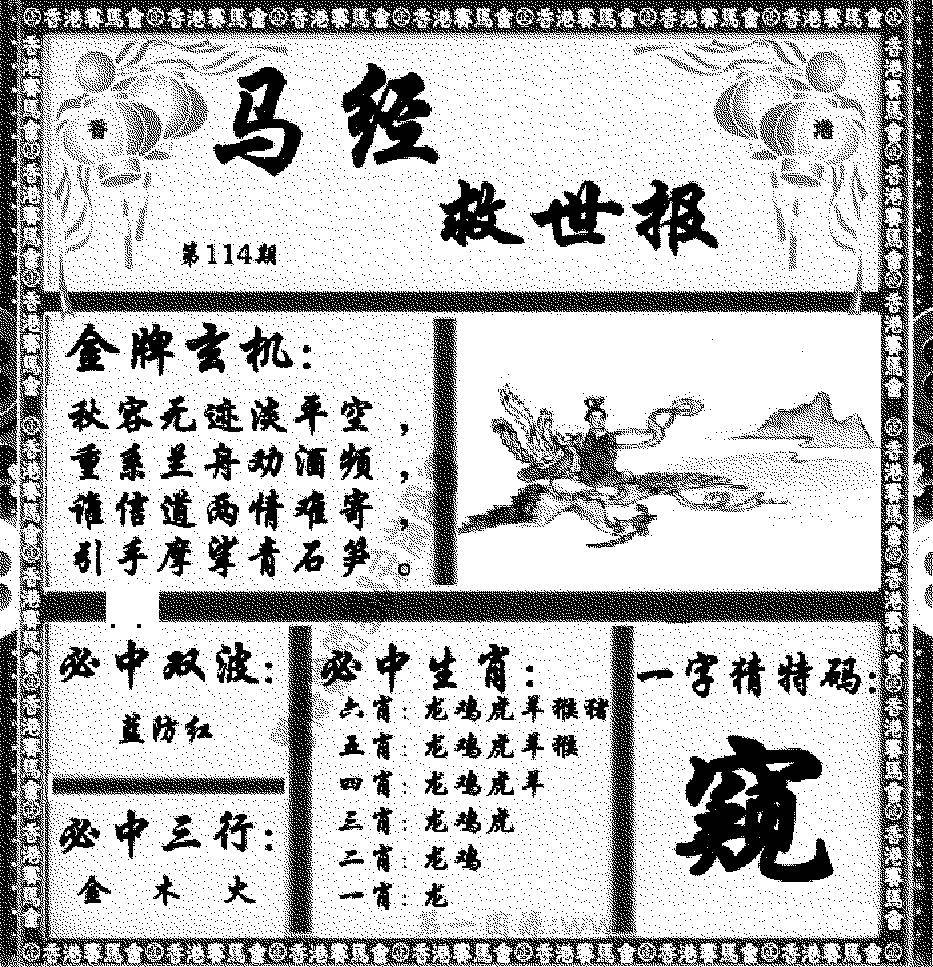 香港賽馬會 香港賽馬會 香港賽馬會 香港賽馬會 香港賽馬會 香港賽馬會 香港賽馬會
香
港
马经
救世报
第114期
金牌玄机:
秋容无迹淡平空,
重系兰舟劝酒频,
谁信道两情难寄,
引手摩挲青石笋。
必中双波:
蓝防红
必中三行:
金 木 火
必中生肖:
六肖: 龙鸡虎羊猴猪
五肖: 龙鸡虎羊猴
四肖: 龙鸡虎羊
三肖: 龙鸡虎
二肖: 龙鸡
一肖: 龙
一字猜特码:
窥
香港賽馬會 香港賽馬會 香港賽馬會 香港賽馬會 香港賽馬會 香港賽馬會 香港賽馬會